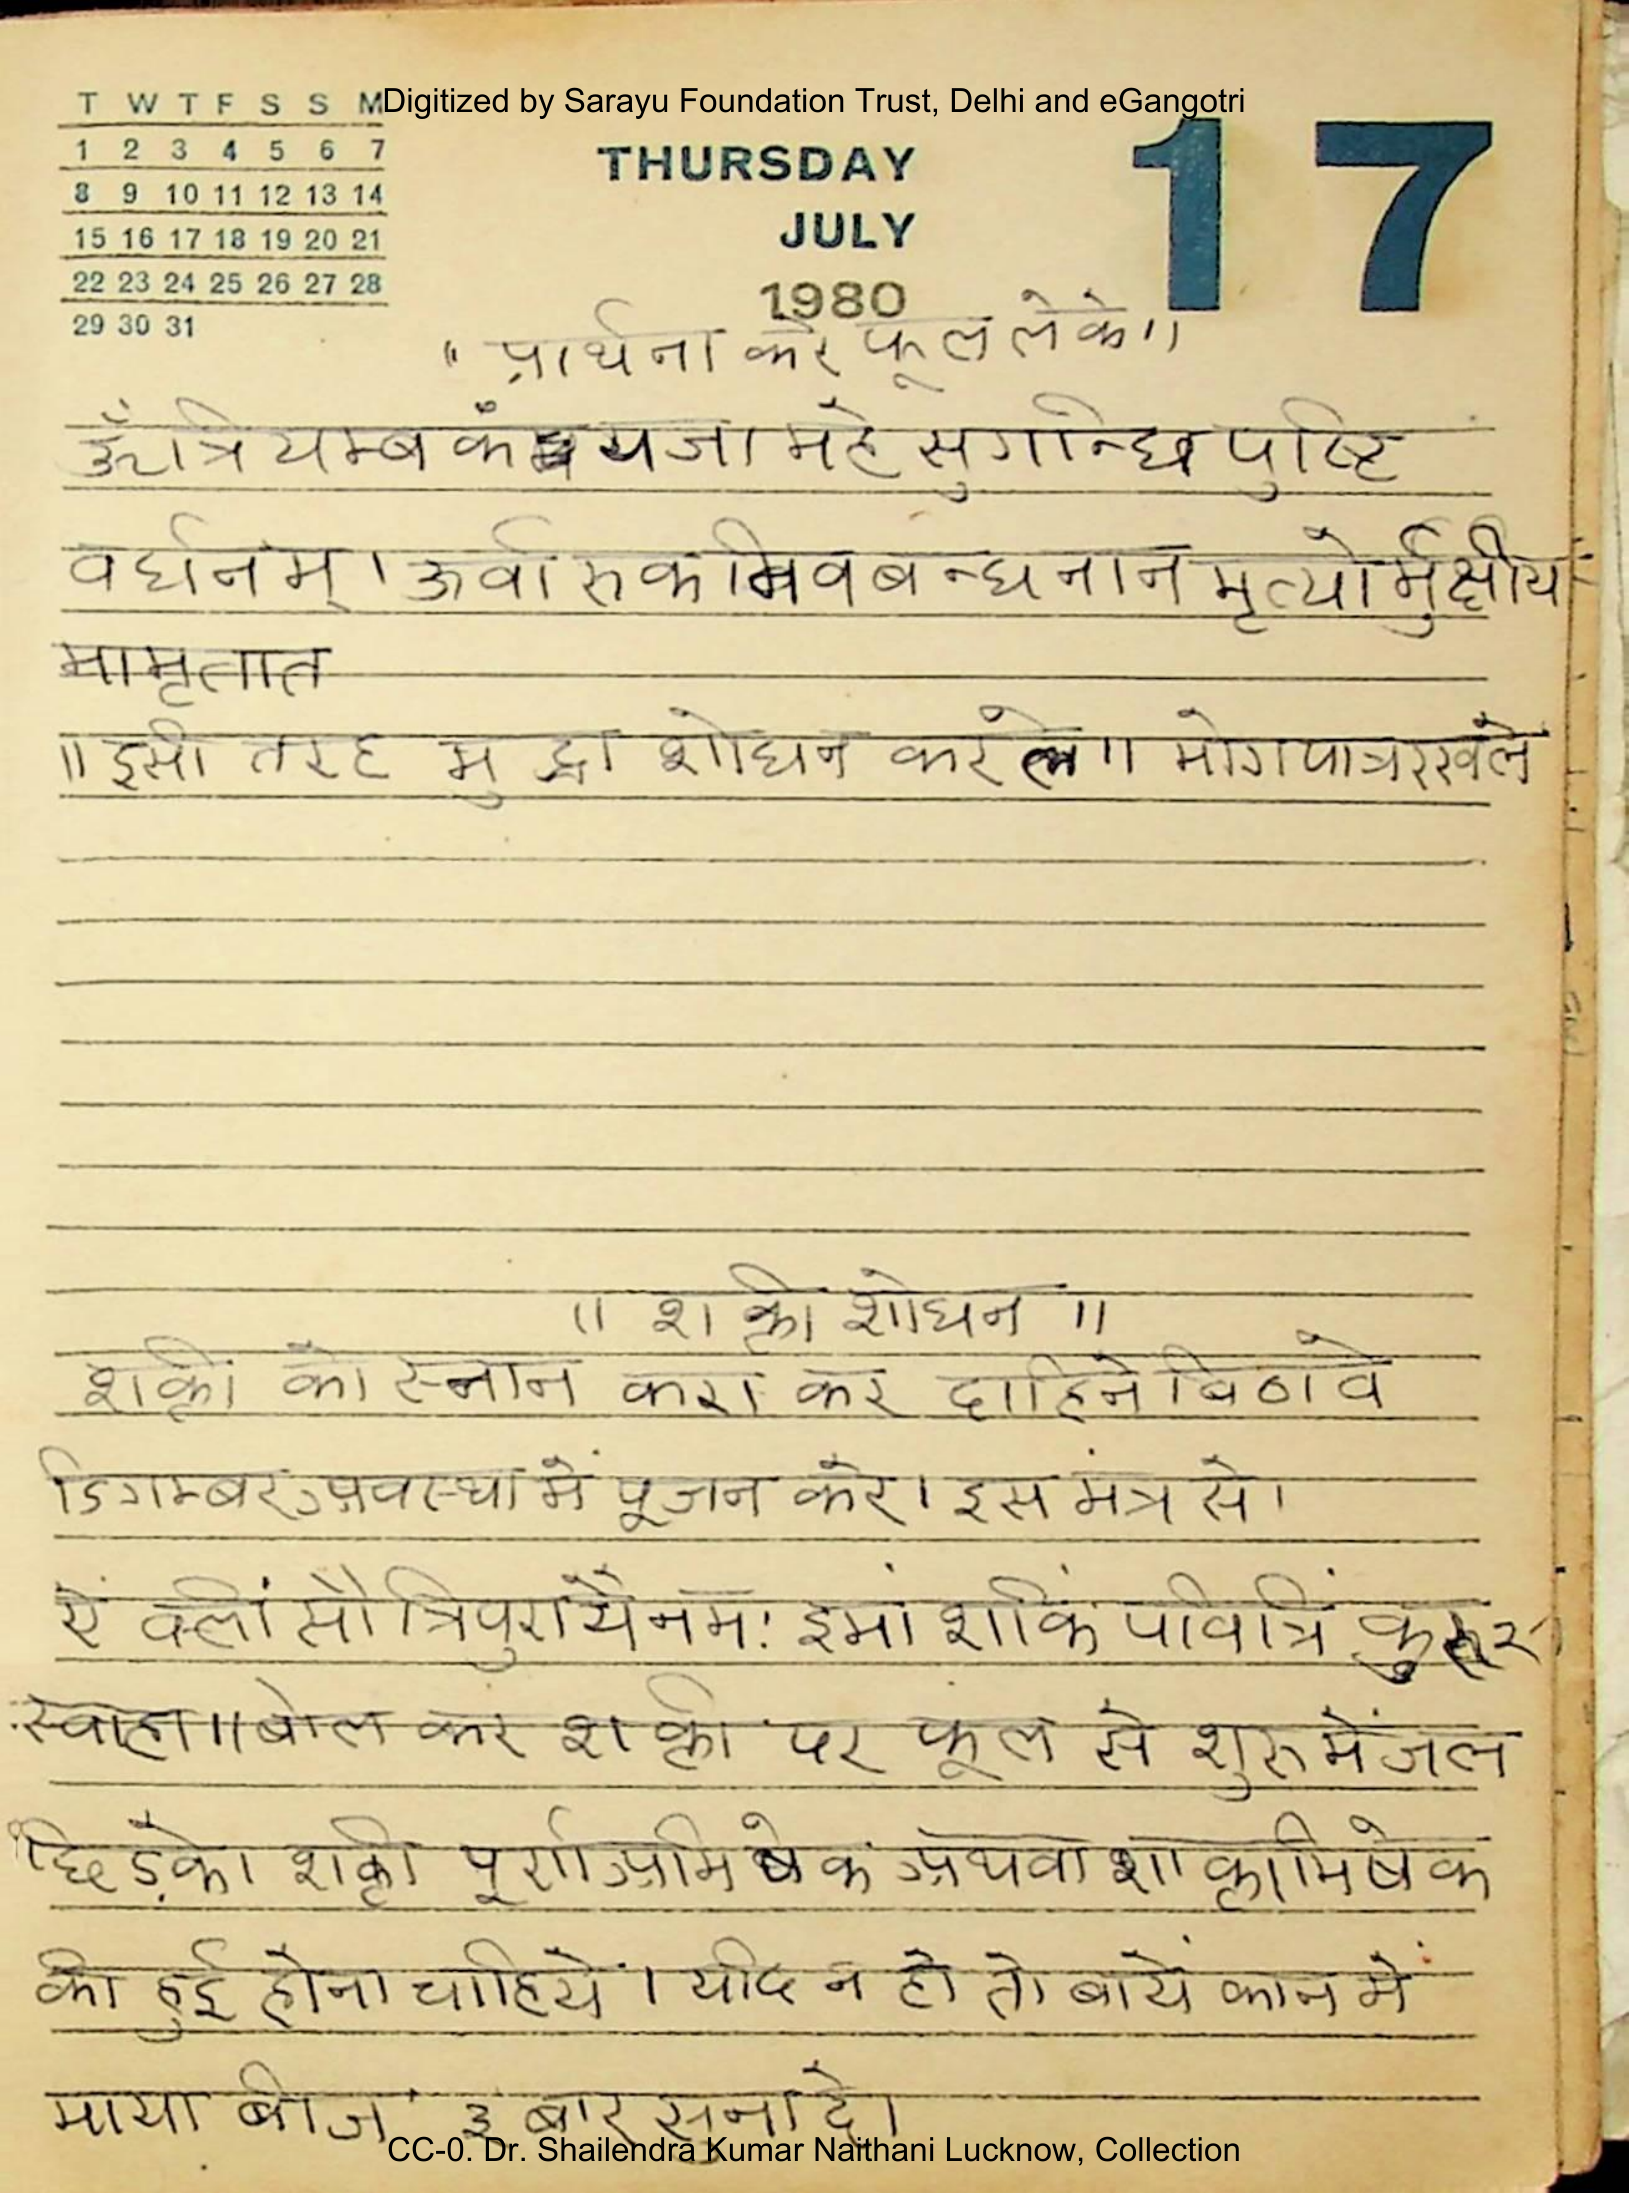 Digitized by Sarayu Foundation Trust, Delhi and eGangotri
T W T F S S M
1 2 3 4 5 6 7
8 9 10 11 12 13 14
15 16 17 18 19 20 21
22 23 24 25 26 27 28
29 30 31
THURSDAY
JULY
1980
17
" प्रार्थना करे फूल लेके"
ॐ त्रियम्बकं यजामहे सुगन्धि पुष्टि
वर्धनम्। ऊर्वारुकमिव बन्धनान मृत्योर्मुक्षीय
मामृतात
॥ इसी तरह मुद्रा शोधन कर ले॥ भोगपात्र रखले
॥ शक्ती शोधन ॥
शक्ती को स्नान करा कर दाहिने बिठावे
डिगम्बर अवस्था में पूजन करे। इस मंत्र से।
ऐं क्लीं सौ त्रिपुरायै नमः इमां शक्तिं पवित्रिं कुरु २
स्वाहा॥ बोल कर शक्ती पर फूल से शुरु में जल
छिड़के। शक्ती पूर्णाअभिषेक अथवा शाक्ताभिषेक
की हुई होना चाहिये। यदि न हो तो बायें कान में
माया बीज ३ बार सुना दे।
CC-0. Dr. Shailendra Kumar Naithani Lucknow, Collection